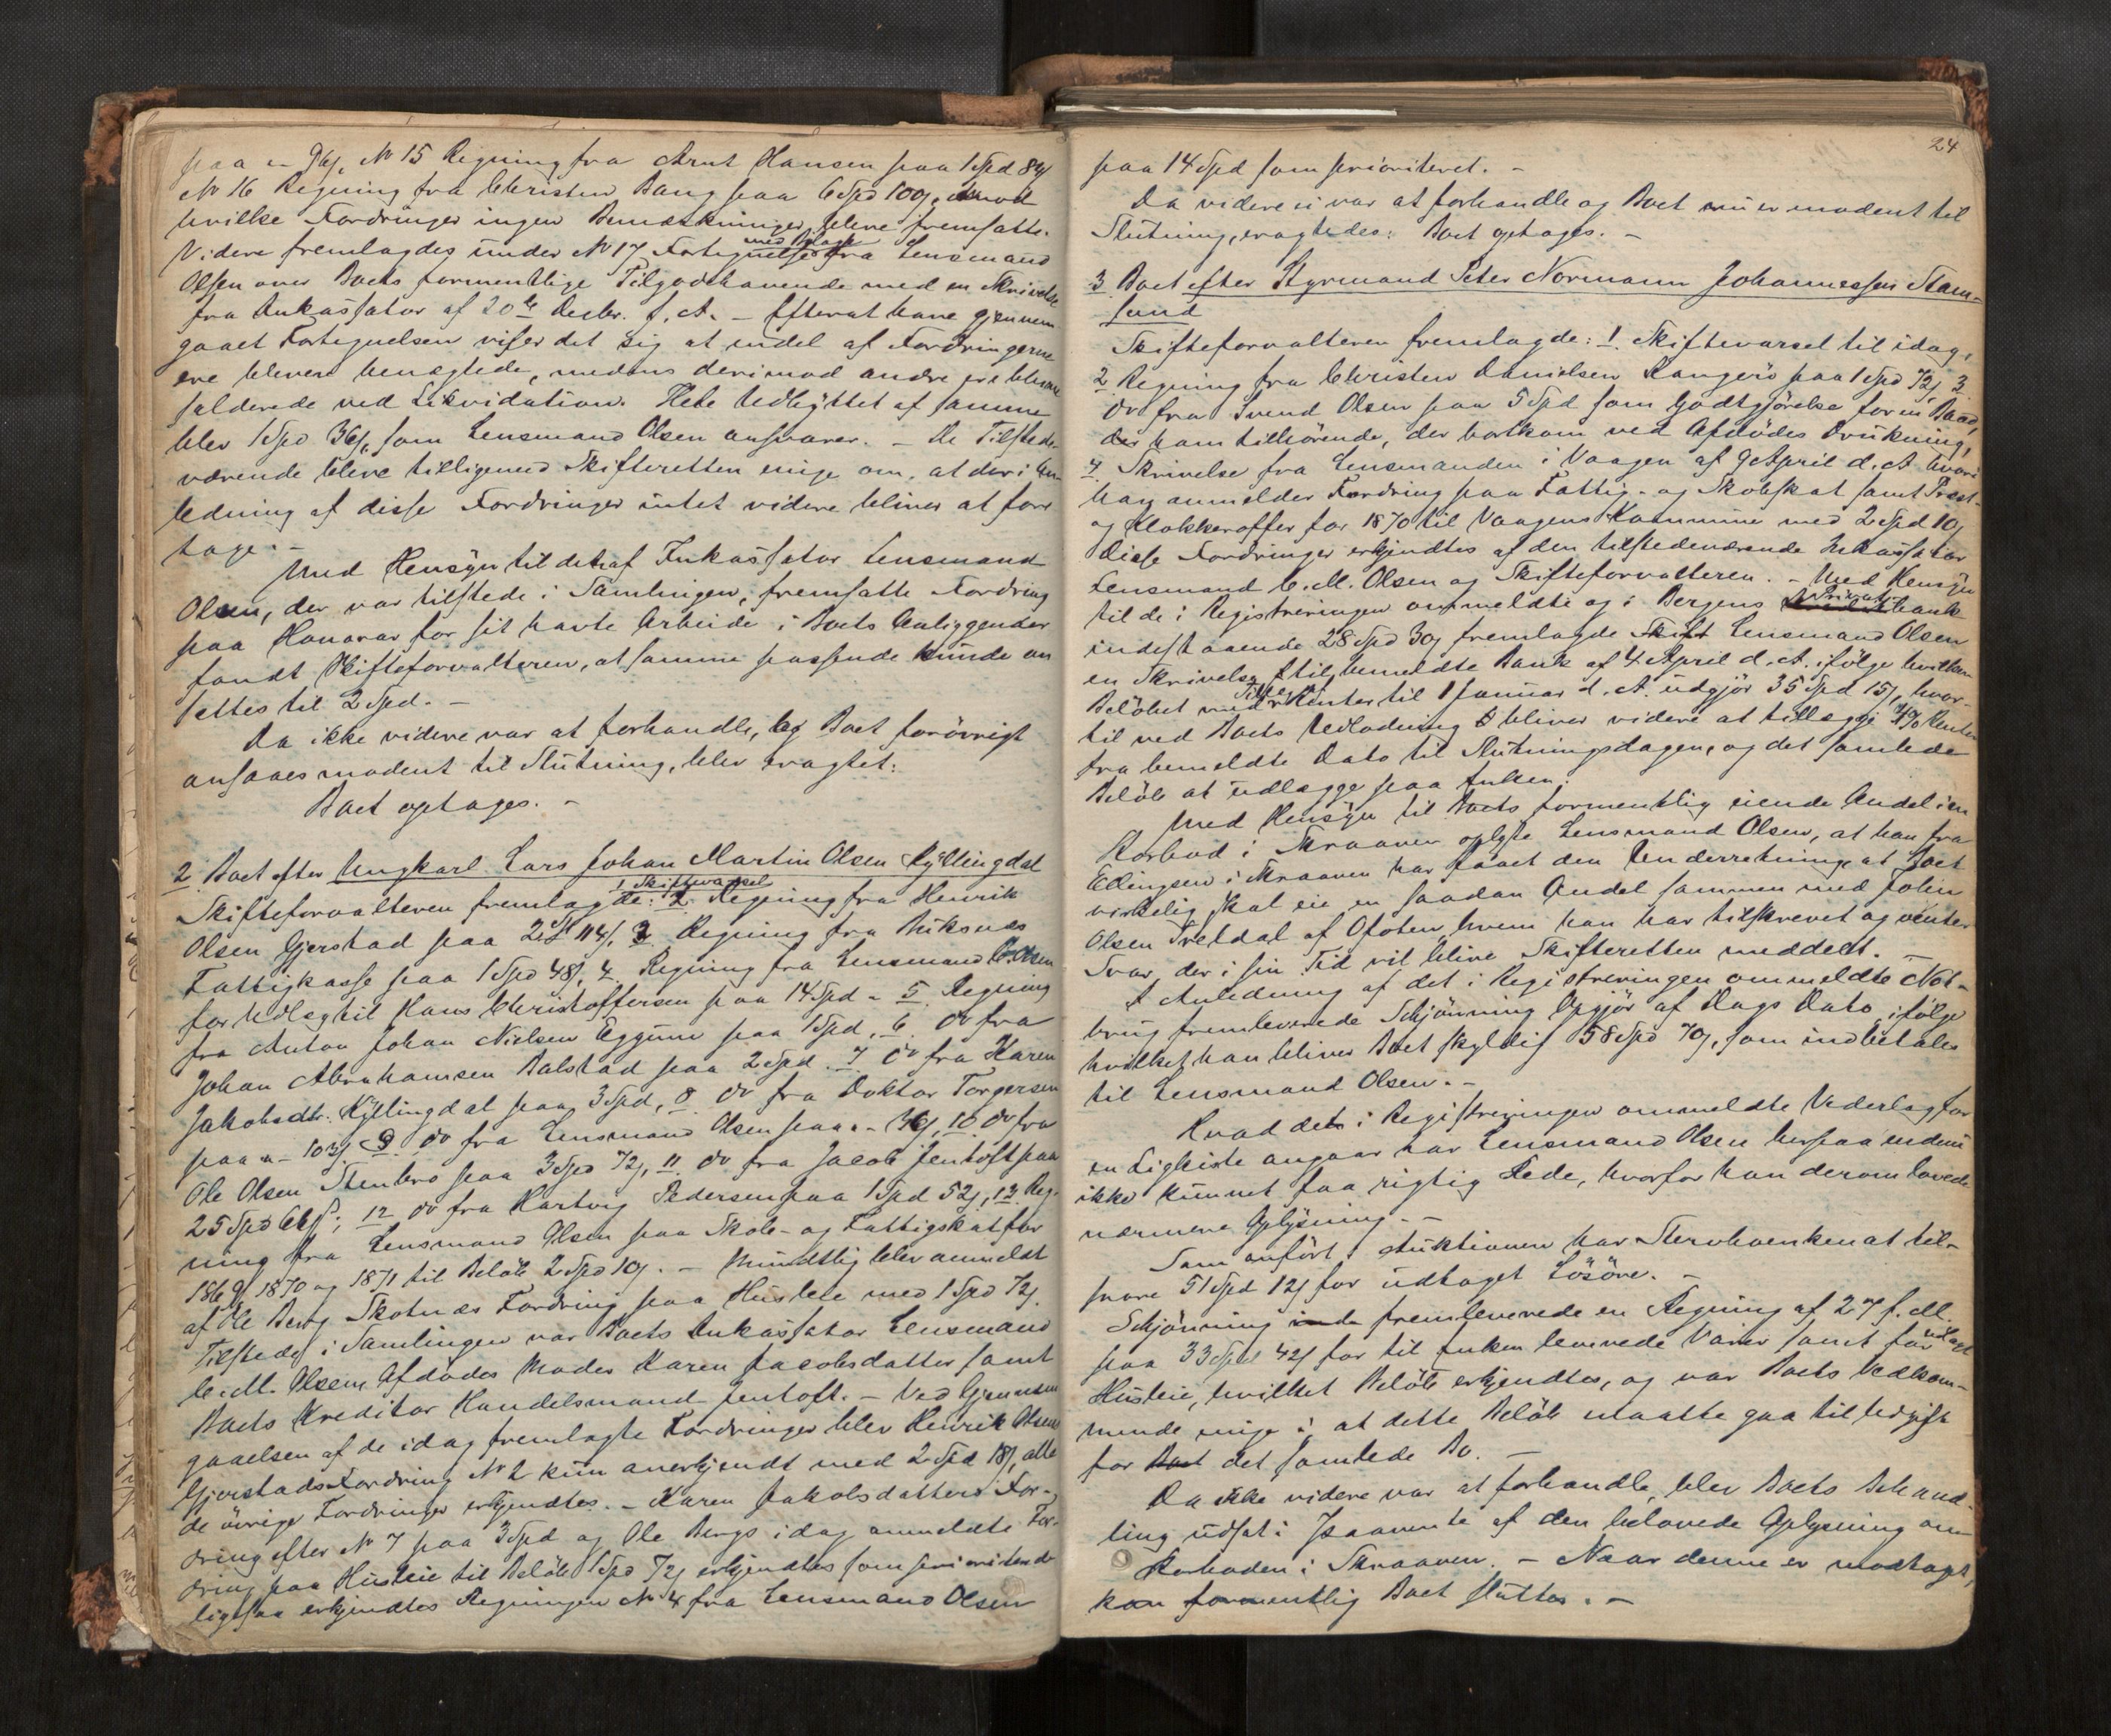 paa „ 96ß, № 15 Regning fra Arnt Hansen paa 1 Spd 84ß
№ 16 Regning fra Christen Bang paa 6 Spd 100ß, imod
hvilke Fordringer ingen Bemærkninger bleve fremsatte.
Videre fremlagdes under № 17 Fortegnelse med Bilage fra Lensmand
Olsen over Boets formentlige Tilgodehavende med en Skrivelse
fra Inkassator af 20de Decbr. f. A. – Efterat have gjennem
gaaet Fortegnelsen viser det sig at endel af Fordringerne
ere blevne benægtede, medens derimod andre ere blevne
salderede ved Likvidation. Hele Udbyttet af samme
blev 1 Spd 36ß, som Lensmand Olsen ansvarer. – De Tilstede-
værende bleve tilligemed Skifteretten enige om, at der i An-
ledning af disse Fordringer intet videre bliver at fore
tage. –
Med Hensyn til det af Inkassator Lensmand
Olsen, der var tilstede i Samlingen, fremsatte Fordring
paa Honorar for sit havte Arbeide i Boets Anliggender
fandt Skifteforvalteren, at samme passende kunde an
settes til 2 Spd. –
Da ikke videre var at forhandle, og Boet forøvrigt
ansaaes modent til Slutning, blev eragtet:
Boet optages. –
2 Boet efter Ungkarl Lars Johan Martin Olsen Kyllingdal
Skifteforvalteren fremlagde: 1 Skiftevarsel 2. Regning fra Henrik
Olsen Gjerstad paa 2 Spd 114ß, 3 Regning fra Buksnes
Fattigkasse paa 1 Spd 48ß, 4. Regning fra Lensmand C. Olsen
for Udlæg til Hans Christoffersen paa 14 Spd – 5. Regning
fra Anton Johan Nielsen Eggum paa 1 Spd, 6. do fra
Johan Abrahamsen Balstad paa 2 Spd. 7 do fra Karen
Jakobsdtr. Kyllingdal paa 3 Spd, 8 do fra Doktor Torgersen
paa „ – 103ß 9 do fra Lensmand Olsen paa „ – 36ß, 10 do fra
Ole Olsen Stenbro paa 3 Spd 72ß, 11 do fra Jacob Jentoft paa
25 Spd 66ß; 12 do fra Hartvig Pedersen paa 1 Spd 52ß, 13 Reg-
ning fra Lensmand Olsen paa Skole- og Fattigskat for
1869, 1870 og 1871 til Beløb 2 Spd 10ß. – Mundtlig blev anmeldt
af Ole Berg Skotnæs Fordring paa Husleie med 1 Spd 72ß.
Tilstede i Samlingen var Boets Inkassator Lensmand
C. M. Olsen, Afdødes Moder Karen Jacobsdatter samt
Boets Kreditor Handelsmand Jentoft. – Ved Gjennem
gaaelsen af de idag fremlagte Fordringer blev Henrik Olsen
Gjerstads Fordring № 2 kun anerkjendt med 2 Spd 18ß, alle
de øvrige Fordringer erkjendtes. – Karen Jakobsdatters For-
dring efter № 7 paa 3 Spd og Ole Bergs idag anmeldte For-
dring paa Husleie til Beløb 1 Spd 72ß erkjendtes som prioriterede
ligesaa erkjendtes Regningen № 4 fra Lensmand Olsen
24
paa 14 Spd som prioriteret. –
Da videre ei var at forhandle og Boet nu er modent til
Slutning, eragtedes: Boet optages. –
3 Boet efter Styrmand Peter Normann Johannessen Stam-
sund
Skifteforvalteren fremlagde: 1. Skiftevarsel til idag,
2 Regning fra Christen Danielsen Rangerö paa 1 Spd 72ß 3
do fra Svend Olsen paa 5 Spd som Godtgjørelse for en Baad,
der ham tilhørende, der bortkom ved Afdødes Drukning,
4 Skrivelse fra Lensmanden i Vaagen af 9 April d. A. hvori
han anmelder Fordring paa Fattig- og Skoleskat samt Præst-
og Klokkeroffer for 1870 til Vaagens Kommune med 2 Spd 10ß
Disse Fordringer erkjendtes af den tilstedeværende Inkassator
Lensmand C. M. Olsen og Skifteforvalteren. – Med Hensyn
til de i Registreringen ommeldte og i Bergens Privatbank
indestaaende 28 Spd 30ß fremlagde Skift Lensmand Olsen
en Skrivelse til bemeldte Bank af 4 April d. A. ifølge hvilken
Beløbet med Tillæg Renter til 1 Januar d. A. udgjør 35 Spd 15ß, hvor-
til ved Boets Udlodning bliver videre at tillægge 4% Renter
fra bemeldte Dato til Slutningsdagen, og det samlede
Beløb at udlægge paa Enken.
Med Hensyn til Boets formentlig eiende Andel i en
Rorbod i Skraaven oplyste Lensmand Olsen, at han fra
Ellingsen i Skraaven har faaet den Underretning at Boet
virkelig skal eie en saadan Andel sammen med John
Olsen Tveldal af Ofoten, hvem han har tilskrevet og venter
Svar, der i sin Tid vil blive Skifteretten meddelt. –
I Anledning af det i Registreringen ommeldte Not-
brug fremleverede Schjønning Opgjør af Dags Dato, ifølge
hvilket han bliver Boet skyldig 58 Spd 70ß, som indbetales
til Lensmand Olsen. –
Hvad det i Registreringen ommeldte Vederlag for
en Ligkiste angaar har Lensmand Olsen herpaa endnu
ikke kunnet faa rigtig Rede, hvorfor han derom lovede
nærmere Oplysning. –
Som anført i Auktionen har Stervboenken at til-
svare 51 Spd 12ß for udtaget Løsøre. –
Schjønning fremleverede en Regning af 27 f. M.
paa 33 Spd 42ß for til Enken leverede Varer samt for udlagt
Husleie, hvilket Beløb erkjendtes, og var Boets Vedkom-
mende enige i, at dette Beløb maatte gaa til Udgift
for Boet det samlede Bo. –
Da ikke videre var at forhandle, blev Boets Behand-
ling udsat i Paavente af den belovede Oplysning om
Rorboden i Skraaven. – Naar denne er modtaget,
kan formentlig Boet sluttes. –